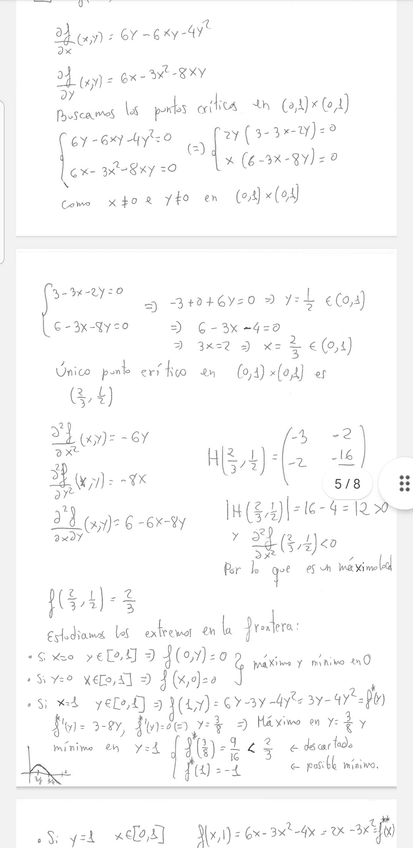 ∂f/∂x (x,y) = 6y - 6xy - 4y²
∂f/∂y (x,y) = 6x - 3x² - 8xy
Buscamos los puntos críticos en (0,1)×(0,1)
{ 6y - 6xy - 4y² = 0 (=) { 2y (3 - 3x - 2y) = 0
{ 6x - 3x² - 8xy = 0 { x (6 - 3x - 8y) = 0
Como x ≠ 0 e y ≠ 0 en (0,1)×(0,1)
{ 3 - 3x - 2y = 0 => -3 + 0 + 6y = 0 => y = 1/2 ∈ (0,1)
{ 6 - 3x - 8y = 0 => 6 - 3x - 4 = 0
=> 3x = 2 => x = 2/3 ∈ (0,1)
Único punto crítico en (0,1)×(0,1) es
(2/3, 1/2)
∂²f/∂x² (x,y) = -6y
H(2/3, 1/2) = ( -3 -2
-2 -16 )
∂²f/∂y² (x,y) = -8x
5 / 8
∂²f/∂x∂y (x,y) = 6 - 6x - 8y
|H(2/3, 1/2)| = 16 - 4 = 12 > 0
y ∂²f/∂x² (2/3, 1/2) < 0
Por lo que es un máximo local
f(2/3, 1/2) = 2/3
Estudiamos los extremos en la frontera:
• Si x=0 y∈[0,1] => f(0,y) = 0 } máximo y mínimo en 0
• Si y=0 x∈[0,1] => f(x,0) = 0
• Si x=1 y∈[0,1] => f(1,y) = 6y - 3y - 4y² = 3y - 4y² = f*(y)
f*'(y) = 3 - 8y, f*'(y) = 0 (=) y = 3/8 => Máximo en y = 3/8 y
mínimo en y = 1 { f*(3/8) = 9/16 < 2/3 ← descartado
f*(1) = -1 ← posible mínimo.
• Si y=1 x∈[0,1] f(x,1) = 6x - 3x² - 4x = 2x - 3x² = f**(x)